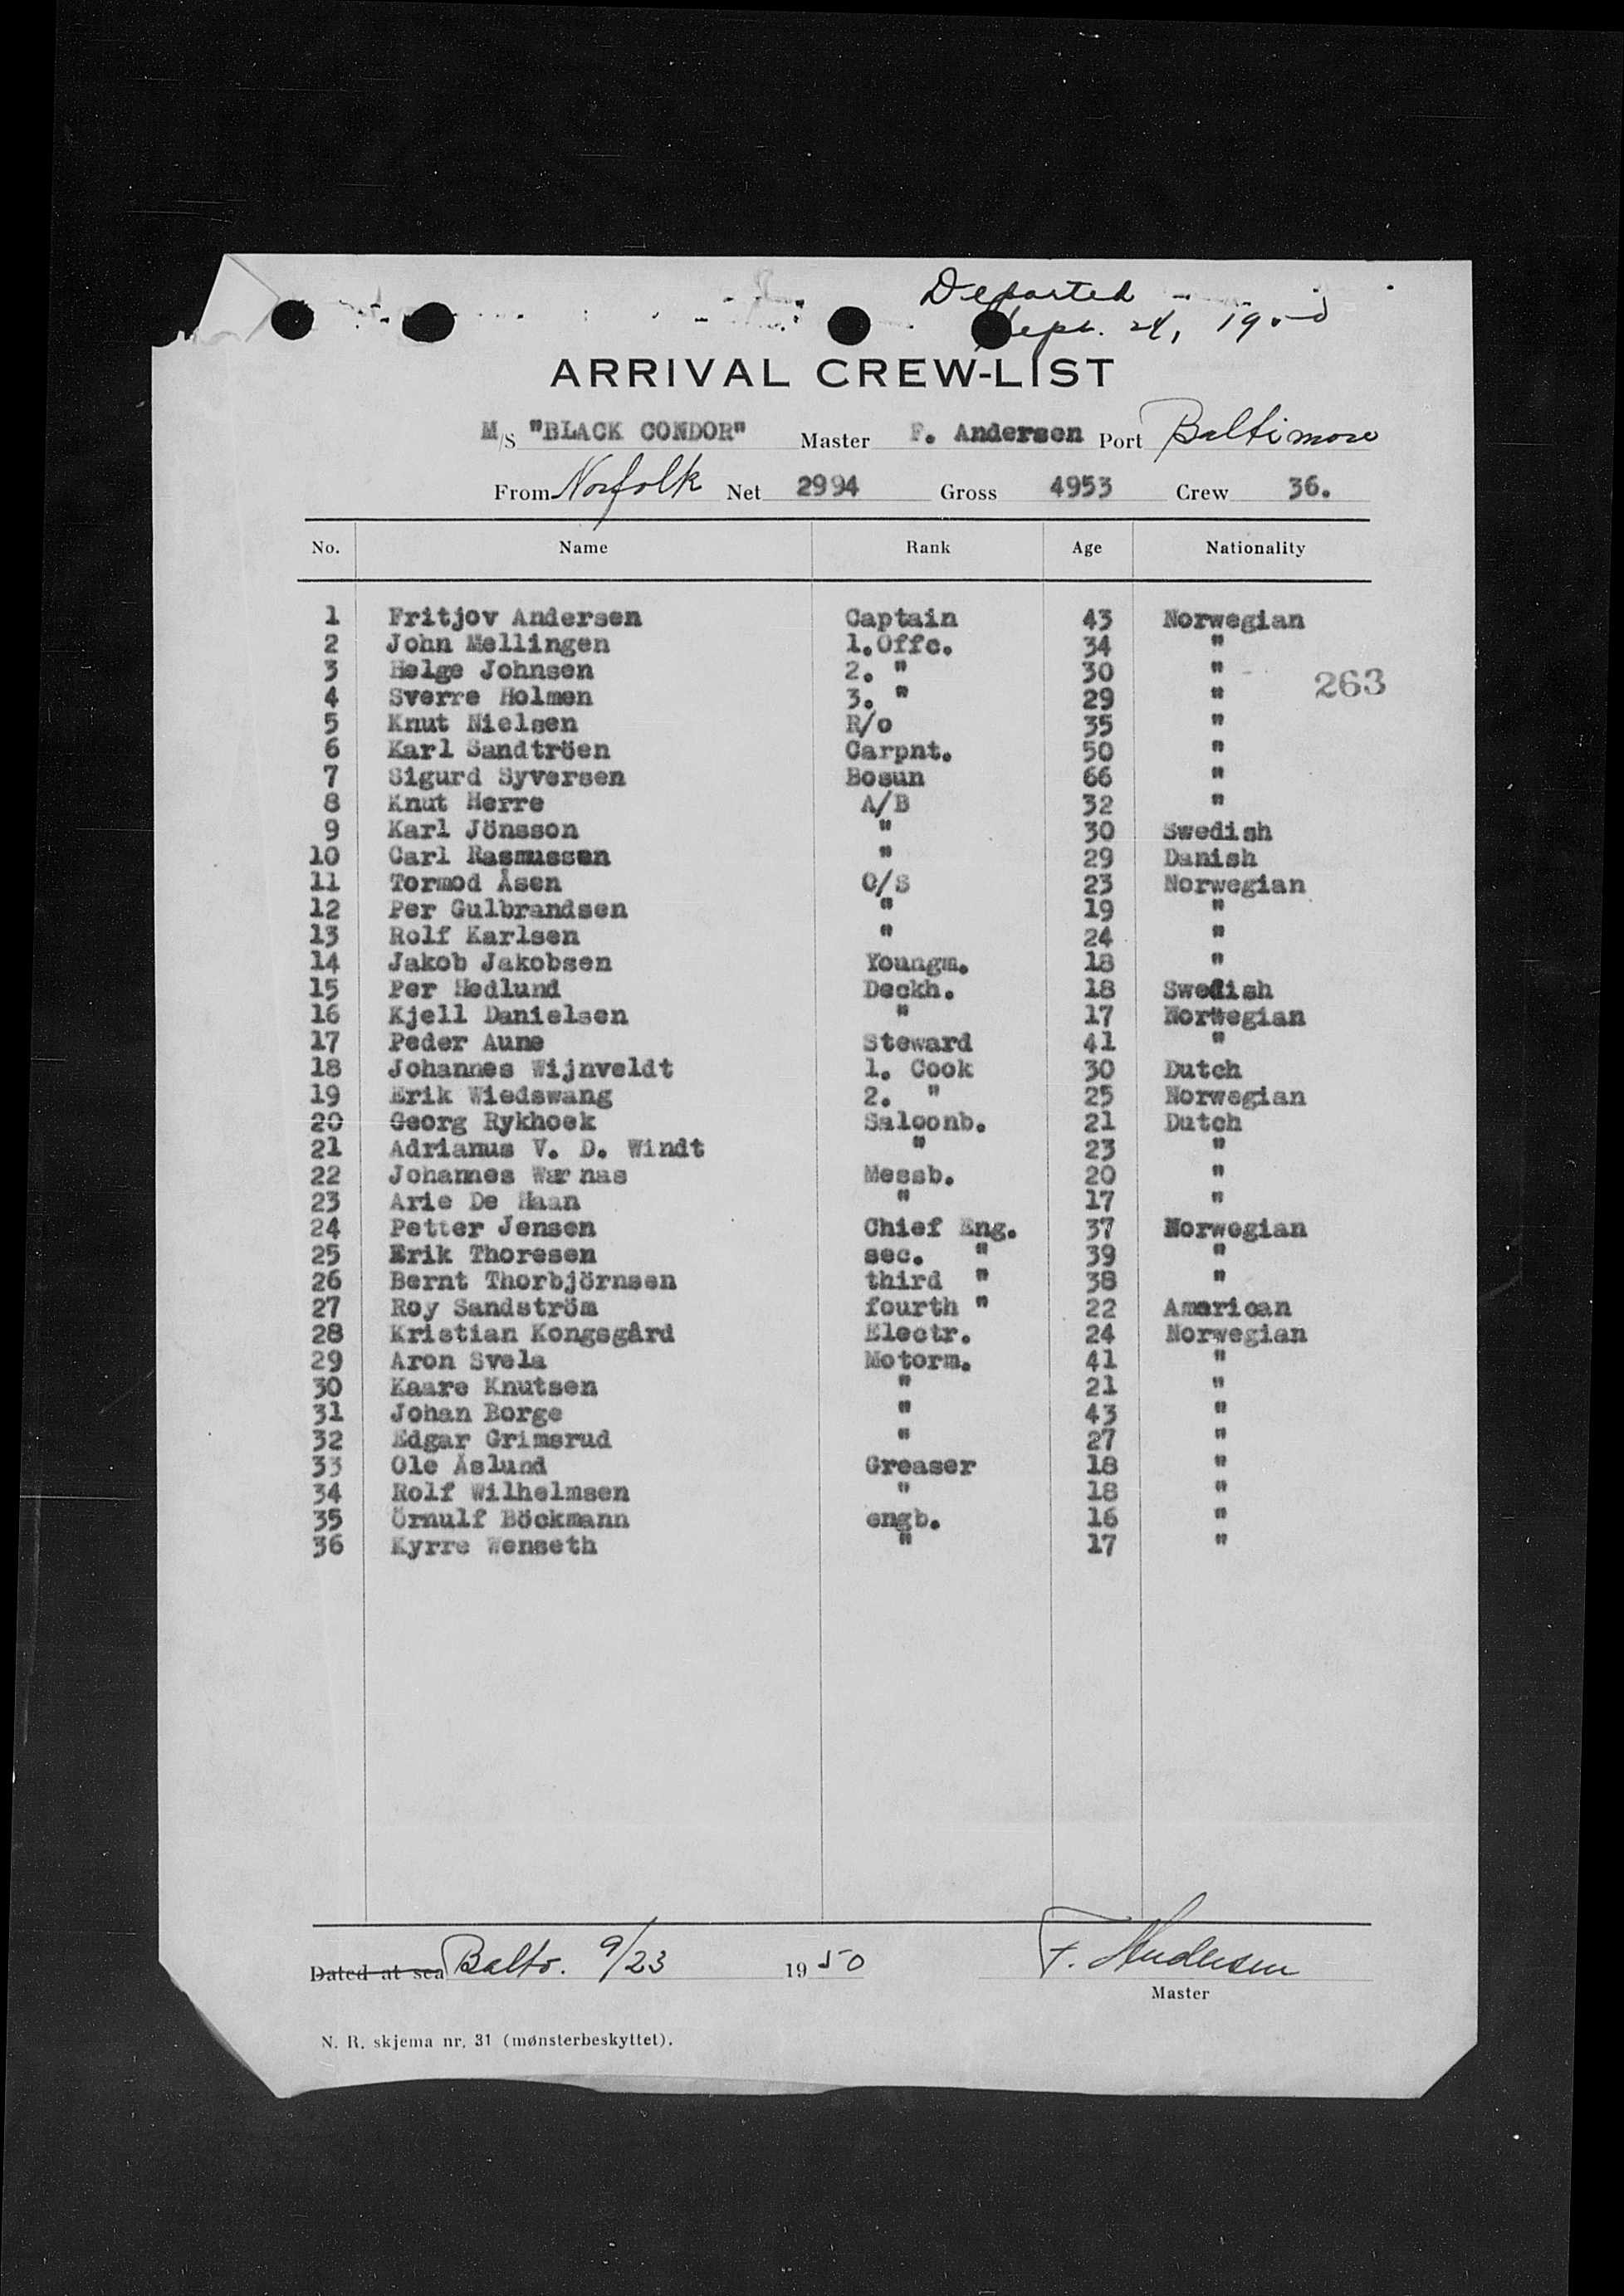 Departed
Sept. 24, 1950
ARRIVAL CREW-LIST
M/S "BLACK CONDOR" Master F. Andersen Port Baltimore
From Norfolk Net 2994 Gross 4953 Crew 36.
No. Name Rank Age Nationality
1 Fritjov Andersen Captain 43 Norwegian
2 John Mellingen 1.Offc. 34 "
3 Helge Johnsen 2. " 30 "
263
4 Sverre Holmen 3. " 29 "
5 Knut Nielsen R/o 35 "
6 Karl Sandtröen Carpnt. 50 "
7 Sigurd Syversen Bosun 66 "
8 Knut Herre A/B 32 "
9 Karl Jönsson " 30 Swedish
10 Carl Rasmussen " 29 Danish
11 Tormod Åsen O/S 23 Norwegian
12 Per Gulbrandsen " 19 "
13 Rolf Karlsen " 24 "
14 Jakob Jakobsen Youngm. 18 "
15 Per Hedlund Deckh. 18 Swedish
16 Kjell Danielsen " 17 Norwegian
17 Peder Aune Steward 41 "
18 Johannes Wijnveldt 1. Cook 30 Dutch
19 Erik Wiedswang 2. " 25 Norwegian
20 Georg Rykhoek Saloonb. 21 Dutch
21 Adrianus V. D. Windt " 23 "
22 Johannes Warnas Messb. 20 "
23 Arie De Haan " 17 "
24 Petter Jensen Chief Eng. 37 Norwegian
25 Erik Thoresen sec. " 39 "
26 Bernt Thorbjörnsen third " 38 "
27 Roy Sandström fourth " 22 American
28 Kristian Kongsgård Electr. 24 Norwegian
29 Aron Svela Motorm. 41 "
30 Kaare Knutsen " 21 "
31 Johan Borge " 43 "
32 Edgar Grimsrud " 27 "
33 Ole Åslund Greaser 18 "
34 Rolf Wilhelmsen " 18 "
35 Örnulf Böckmann engb. 16 "
36 Kyrre Wenseth " 17 "
Dated at sea Balto. 9/23 1950 F. Andersen
Master
N. R. skjema nr. 31 (mønsterbeskyttet).